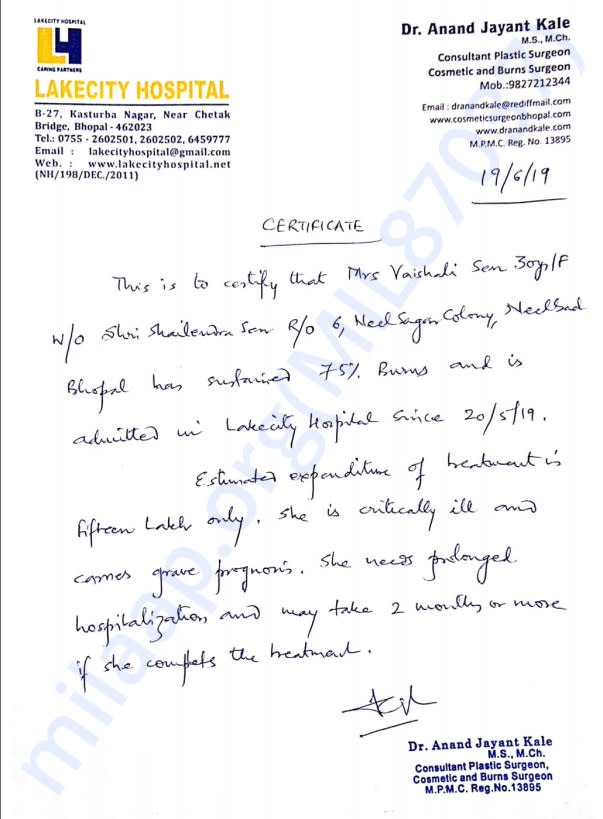 LAKECITY HOSPITAL
LH
CARING PARTNERS
LAKECITY HOSPITAL
B-27, Kasturba Nagar, Near Chetak
Bridge, Bhopal - 462023
Tel.: 0755 - 2602501, 2602502, 6459777
Email : lakecityhospital@gmail.com
Web. : www.lakecityhospital.net
(NH/198/DEC./2011)
Dr. Anand Jayant Kale
M.S., M.Ch.
Consultant Plastic Surgeon
Cosmetic and Burns Surgeon
Mob.:9827212344
Email : dranandkale@rediffmail.com
www.cosmeticsurgeonbhopal.com
www.dranandkale.com
M.P.M.C. Reg. No. 13895
19/6/19
CERTIFICATE
This is to certify that Mrs Vaishali Sen 30yr/F
W/o Shri Shailendra Sen R/o 6, Neel Sagar Colony, Neelbad
Bhopal has sustained 75% Burns and is
admitted in Lakecity Hospital since 20/5/19.
Estimated expenditure of treatment is
fifteen Lakh only. She is critically ill and
carries grave prognosis. She needs prolonged
hospitalization and may take 2 months or more
if she complets the treatment.
Dr. Anand Jayant Kale
M.S., M.Ch.
Consultant Plastic Surgeon,
Cosmetic and Burns Surgeon
M.P.M.C. Reg.No.13895